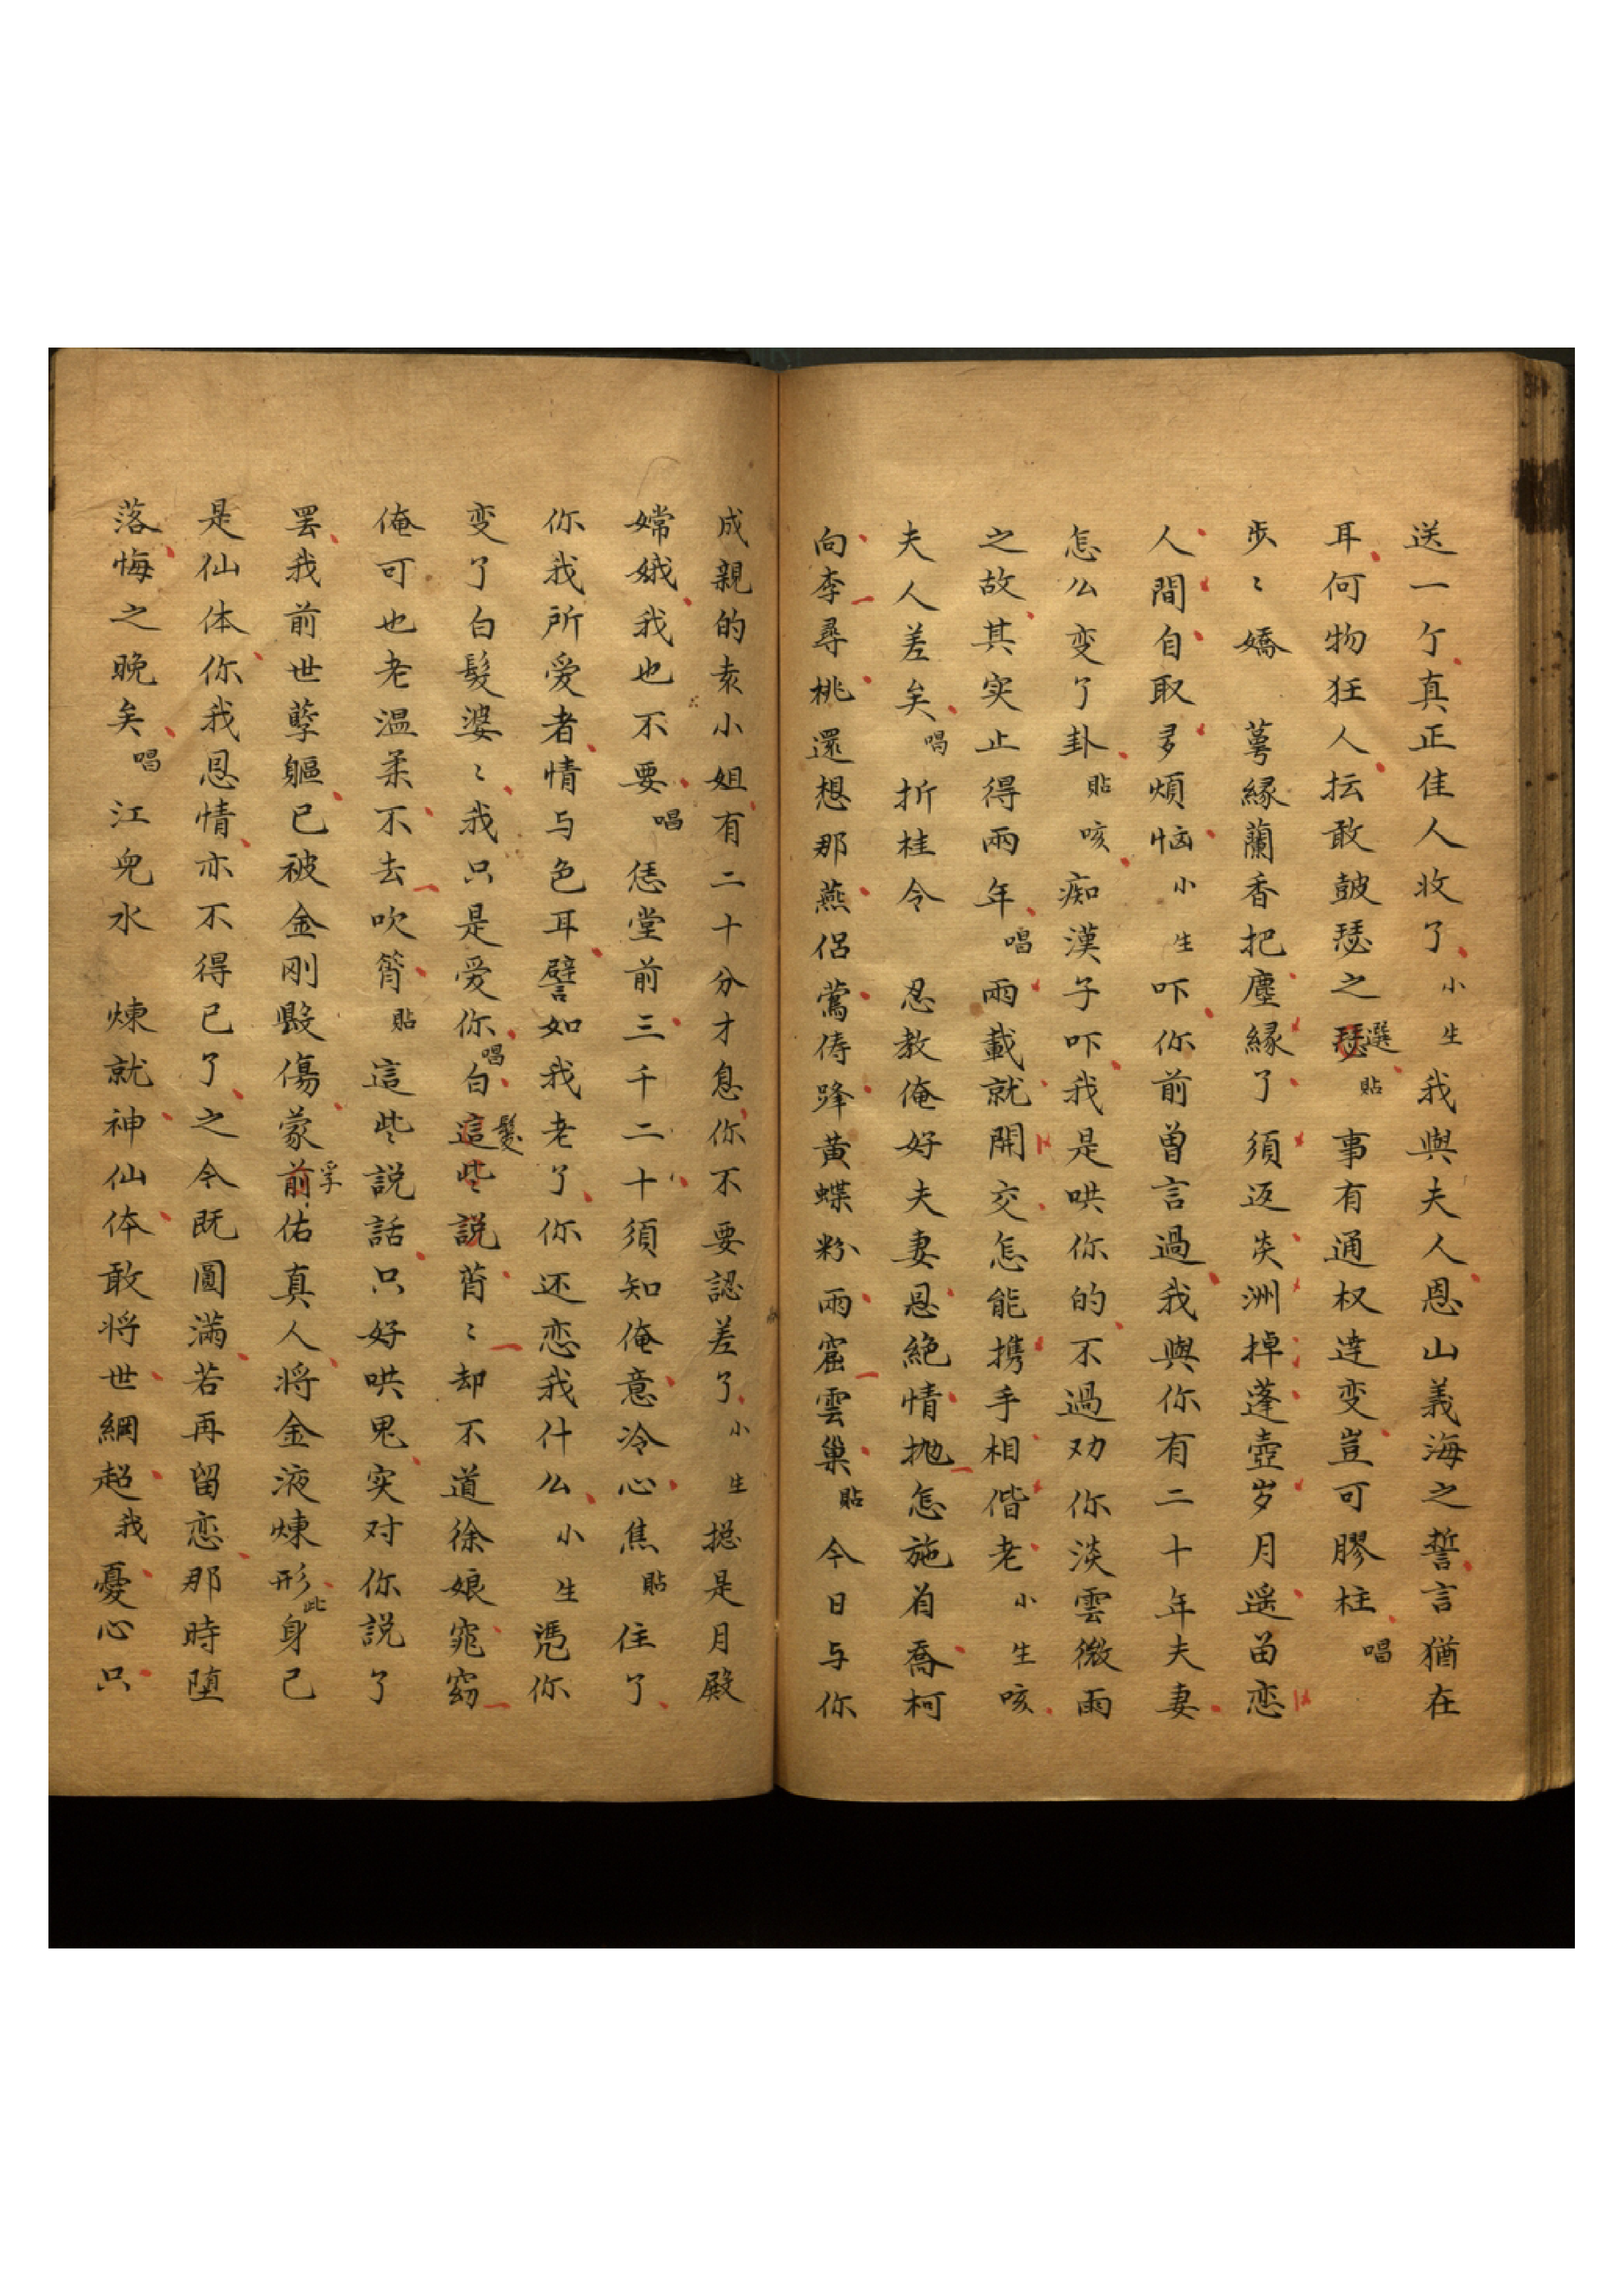 送一个真正佳人收了小生我與夫人恩山義海之誓言猶在
耳何物狂人抎敢皷瑟之瑟選貼事有通权達变豈可膠柱唱
步〻嬌 萼緣蘭香把塵緣了須返炎洲掉蓬壺岁月遥苗恋
人間自取多煩恼小生吓你前曾言過我與你有二十年夫妻
怎么变了卦貼咳痴漢子吓我是哄你的不過劝你淡雲微雨
之故其实止得兩年唱兩載就開交怎能携手相偕老小生咳
夫人差矣唱折桂令 忍教俺好夫妻恩絕情抛怎施肩喬柯
向李尋桃還想那燕侣鶯儔蜂黄蝶粉雨窟雲巢貼今日与你
成親的袁小姐有二十分才息你不要認差了小生摠是月殿
嫦娥我也不要唱恁堂前三千二十須知俺意冷心焦貼住了
你我所爱者情与色耳譬如我老了你还恋我什么小生凴你
变了白髮婆〻我只是爱你唱白這些説髮蒼〻却不道徐娘窕窈
俺可也老温柔不去吹簫貼這些説話只好哄鬼实对你説了
罢我前世孽軀已被金刚毀傷蒙前孚佑真人将金液煉形此身已
是仙体你我恩情亦不得已了之今既圓滿若再留恋那時堕
落悔之晚矣唱江兒水 煉就神仙体敢将世綱超我憂心只